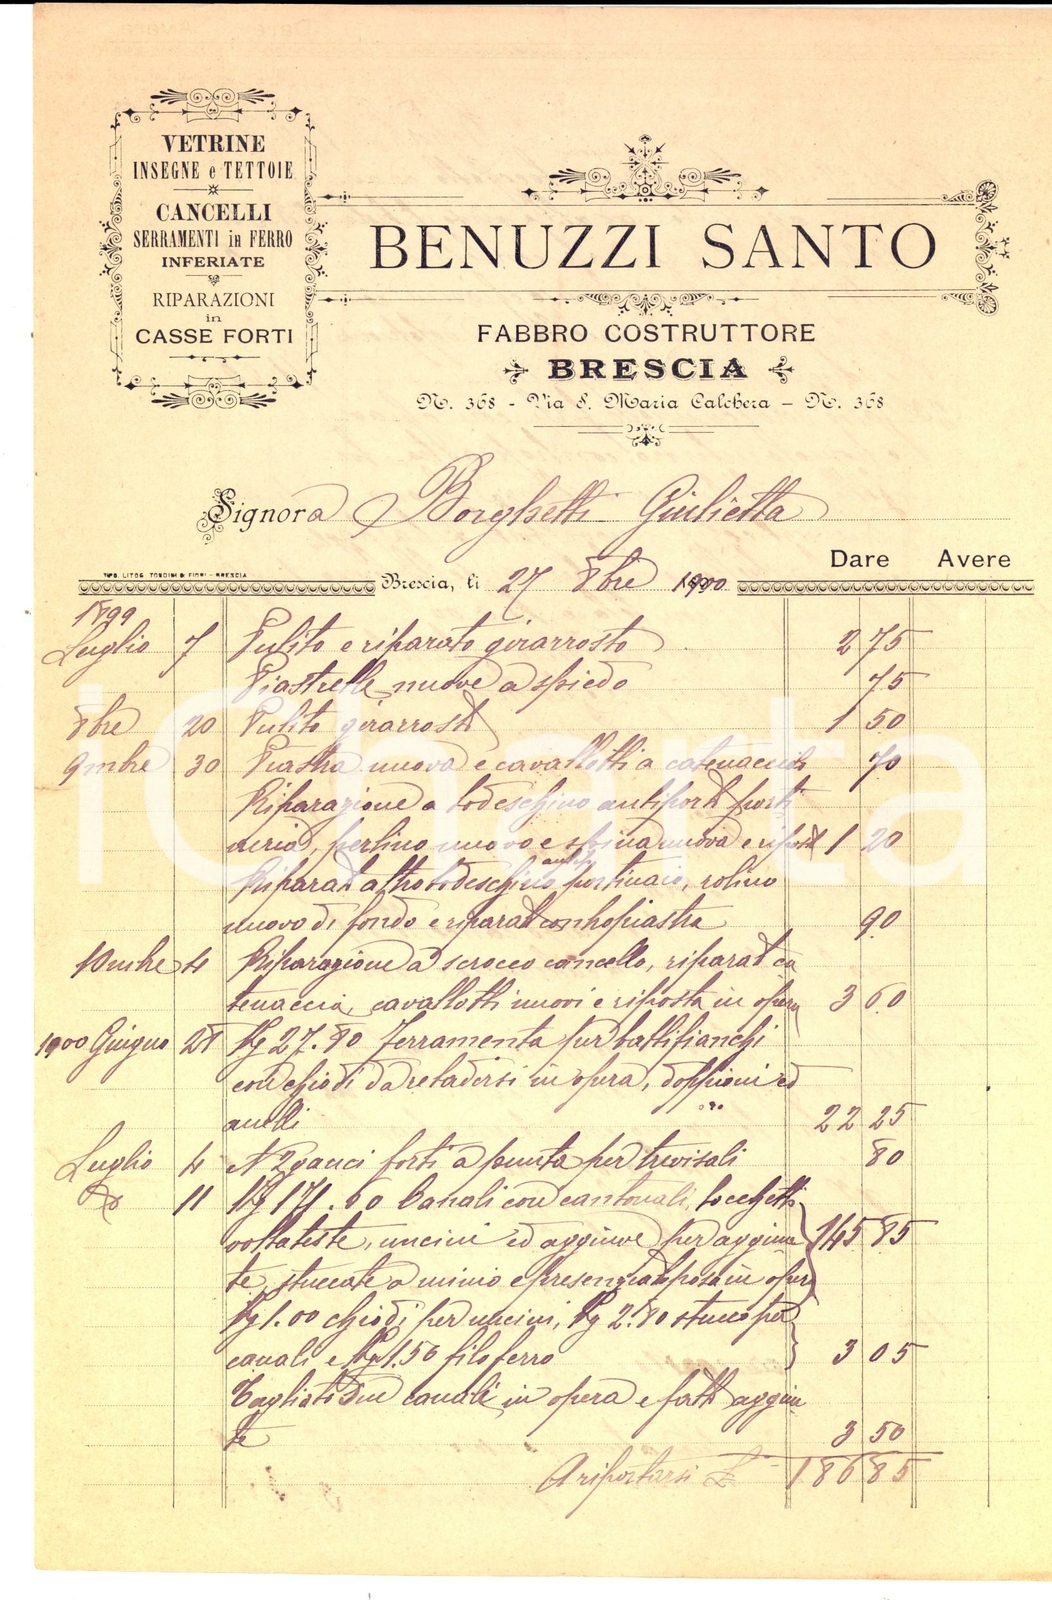 VETRINE
INSEGNE e TETTOIE
CANCELLI
SERRAMENTI in FERRO
INFERIATE
RIPARAZIONI
in
CASSE FORTI
BENUZZI SANTO
FABBRO COSTRUTTORE
BRESCIA
N. 368 - Via S. Maria Calchera - N. 368
Signora Borghetti Giulietta
Dare Avere
TIPO. LITOG. TONDINI & FIORI - BRESCIA
Brescia, li 27 8bre 1900
1899
Luglio 7 Pulito e riparato girarrosto 2 75
Piastrelle nuove a spiedo 75
8bre 20 Pulito girarrosto 1 50
9mbre 30 Piastra nuova e cavallotti a catenaccio 70
Riparazione a todeschino antiporto porti
neria, perlino nuovo e spina nuova e riposto 1 20
Riparato altro todeschino portinaio, rolino
nuovo di fondo e riparato contropiastra 90
10mbre 4 Riparazione a scrocco cancello, riparato ca
tenaccia, cavallotti nuovi e riposta in opera 3 60
1900 Giugno 28 Kg 27.80 Ferramenta per battifianchi
con chiodi da ribadirsi in opera, doppioni ed
anelli 22 25
Luglio 4 N 2 ganci forti a punta per trevisali 80
Do 11 Kg 171.60 Canali con cantonali, tocchetti
voltateste, uncini ed aggiunte per aggiun 145 85
te, stuccate a minio e presenziato posa in opera
Kg 1.00 chiodi per uncini, Kg 2.80 stucco per
canali e Kg 1.50 filo ferro 3 05
Tagliati due canali in opera e fatto aggiun
te 3 50
A riportarsi £ 186 85
iCharta